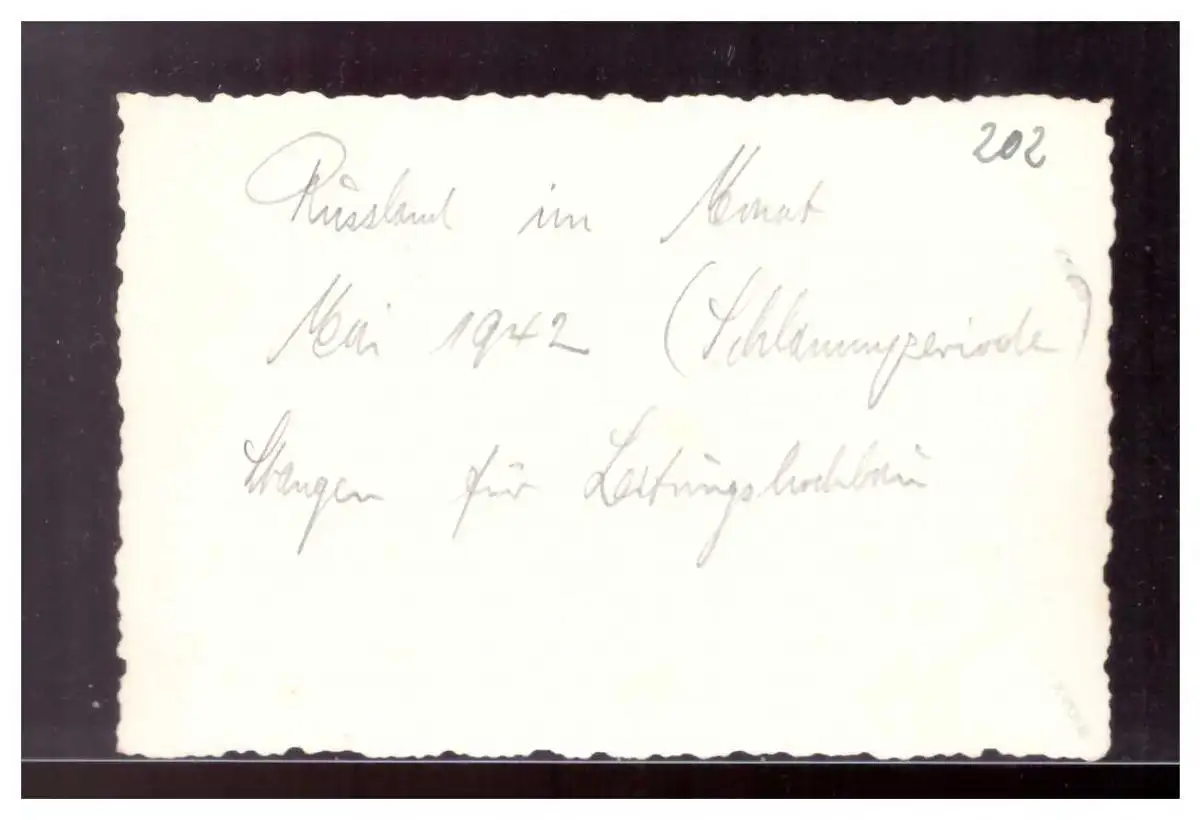 202
Russland im Monat
Mai 1942 (Schlammperiode)
Stangen für Leitungshochbau